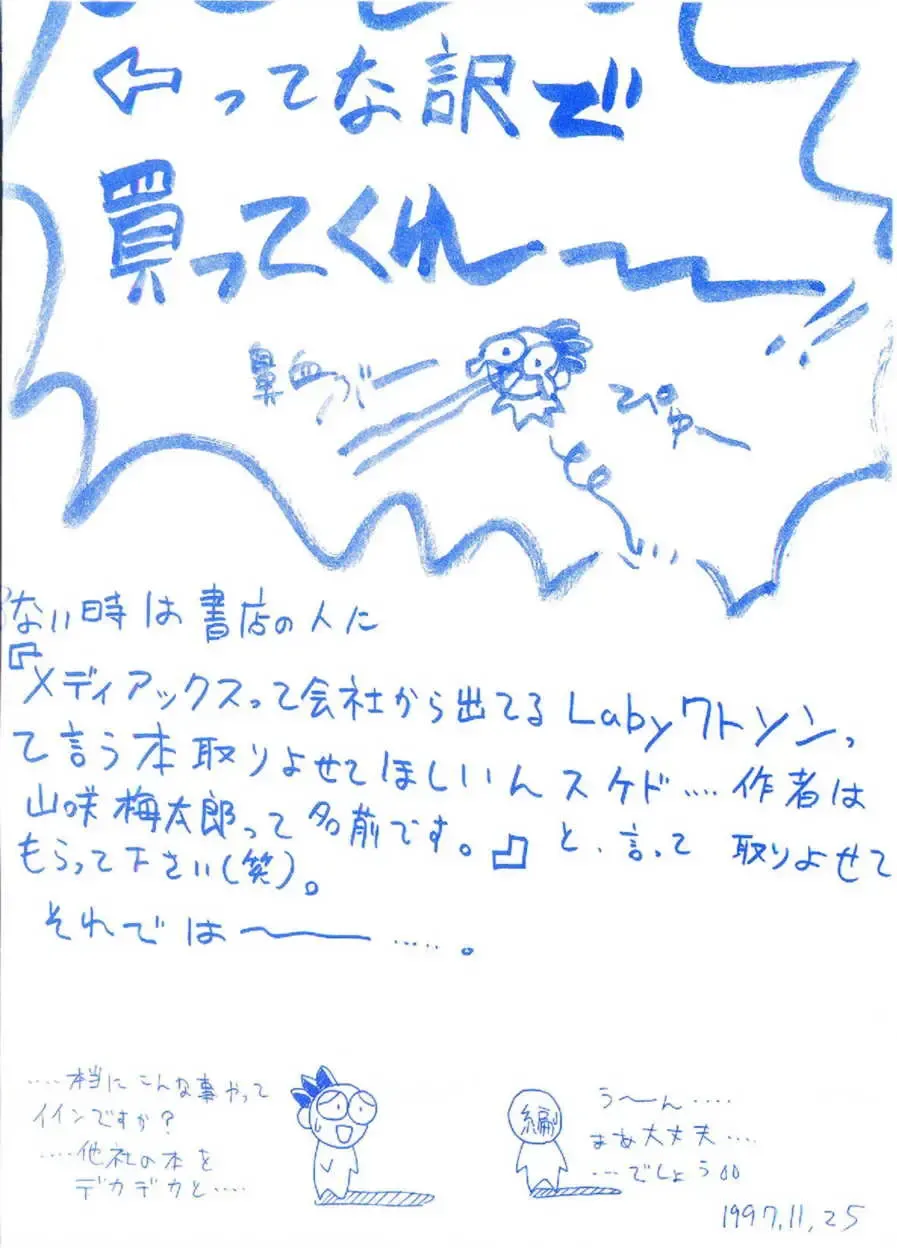 ってな訳で
買ってくれ〜〜!!
鼻血ブー
ぴゅ〜
ない時は書店の人に
『メディアックスって会社から出てるLabyワトソンっ
て言う本取りよせてほしいんスケド....作者は
山咲梅太郎って名前です。』と、言って取りよせて
もらって下さい(笑)。
それでは〜.....。
....本当にこんな事やって
イインですか?
....他社の本を
デカデカと....
編
う〜ん....
まあ大丈夫....
...でしょう
1997.11.25